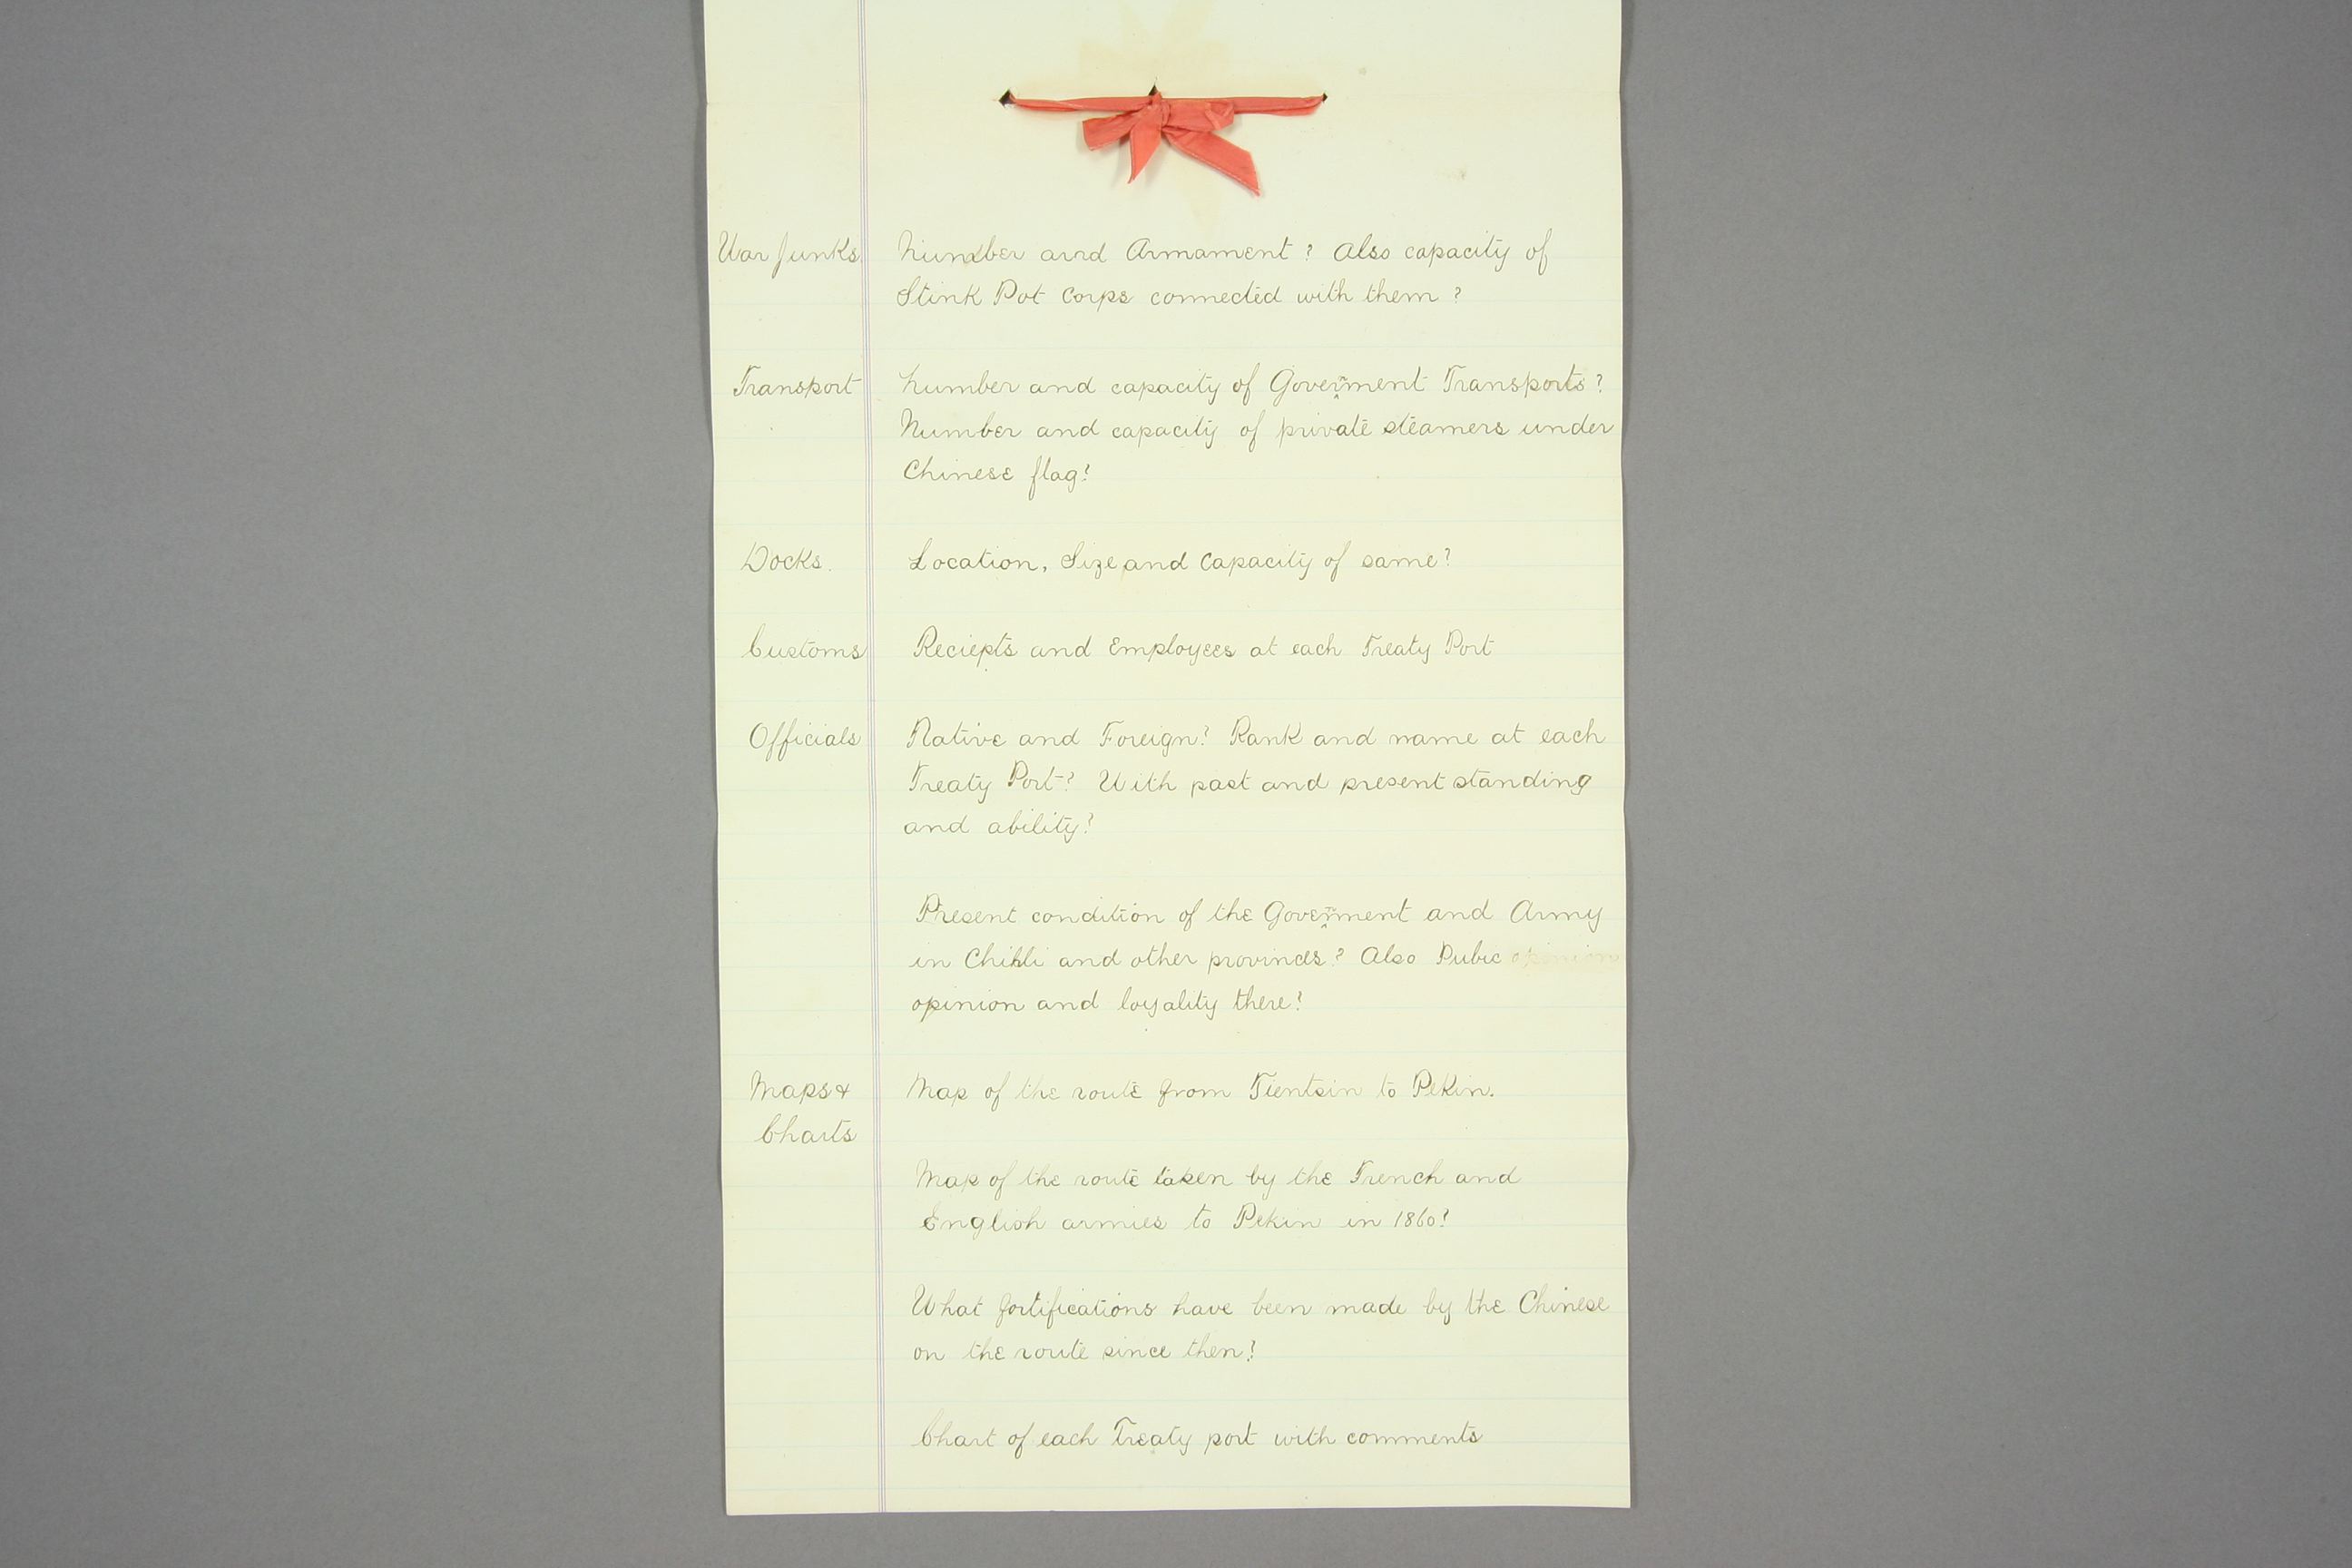 War Junks. Number and Armament? Also capacity of
Stink Pot Corps connected with them?
Transport Number and capacity of Government Transports?
Number and capacity of private steamers under
Chinese flag?
Docks. Location, Size and Capacity of same?
Customs Reciepts and Employees at each Treaty Port
Officials Native and Foreign? Rank and name at each
Treaty Port? With past and present standing
and ability?
Present condition of the Government and Army
in Chihli and other provinces? Also Pubic opinion
opinion and loyality there?
Maps & Map of the route from Tientsin to Pekin.
Charts
Map of the route taken by the French and
English armies to Pekin in 1860?
What fortifications have been made by the Chinese
on the route since then?
Chart of each Treaty port with comments